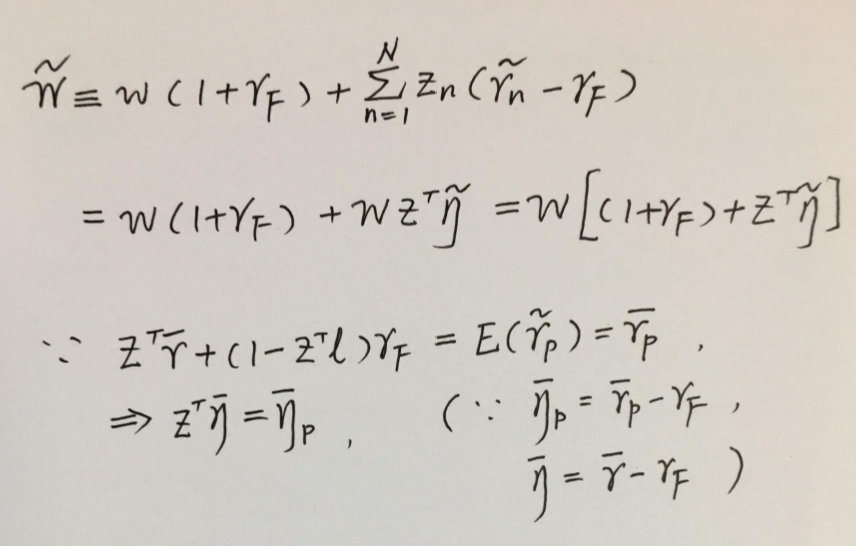 W̃ ≡ w(1+r_F) + Σ_{n=1}^{N} z_n(r̃_n − r_F)
= w(1+r_F) + w z^T η̃ = w[(1+r_F) + z^T η̃]
∵ z^T r̄ + (1 − z^T l)r_F = E(r̃_p) = r̄_p ,
⇒ z^T η̄ = η̄_p , (∵ η̄_p = r̄_p − r_F ,
η̄ = r̄ − r_F )